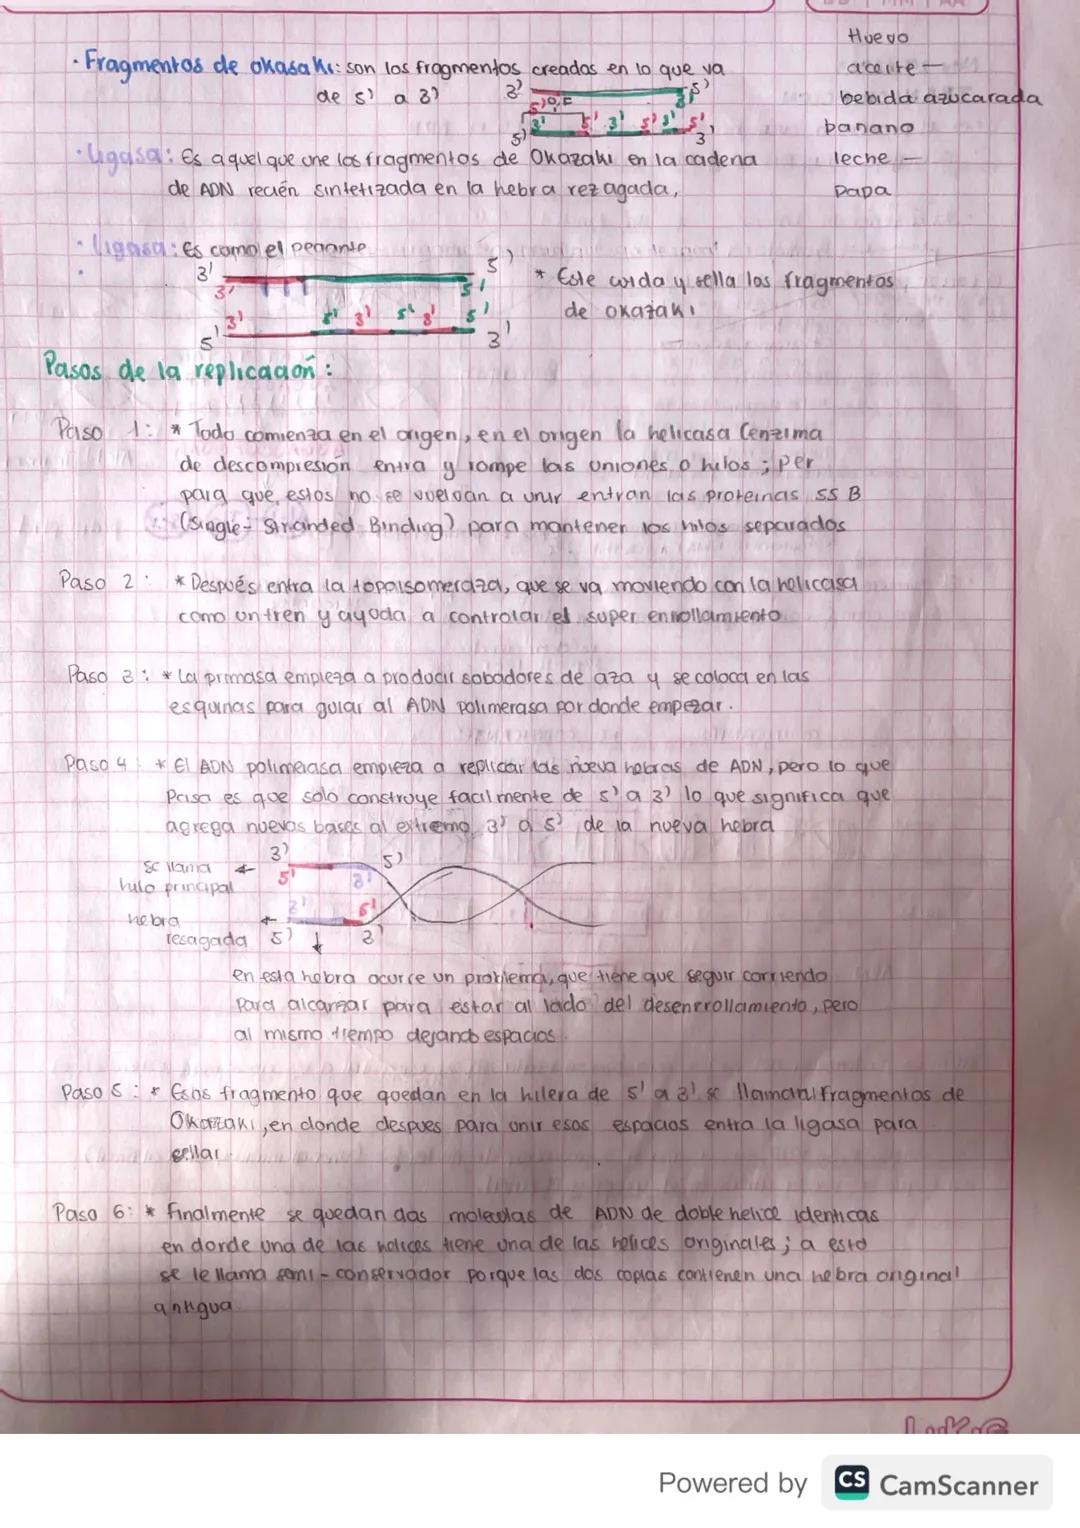 Huevo
aceite —
bebida azucarada
banano
leche —
papa
· Fragmentos de okasaki: son los fragmentos creados en lo que va
de 5' a 3'
3' 5'
5' O.F 3'
3' 5' 3' 5' 3' 5'
5' 3'
· Ligasa: Es aquel que une los fragmentos de Okazaki en la cadena
de ADN recién sintetizada en la hebra rezagada,
· Ligasa: Es como el pegante
3' 5'
3' 5'
3' 5' 3' 5' 3' 5'
5' 3'
* Este corda y sella los fragmentos
de okazaki
Pasos de la replicación:
Paso 1: * Todo comienza en el origen, en el origen la helicasa (enzima
de descompresión entra y rompe las uniones o hilos ; per
para que estos no se vuelvan a unir entran las proteinas SS B
(Single- Stranded Binding) para mantener los hilos separados
Paso 2: * Después entra la topoisomeraza, que se va moviendo con la helicasa
como un tren y ayuda a controlar el super enrollamiento
Paso 3: * La primasa empieza a producir sobadores de aza y se coloca en las
esquinas para guiar al ADN polimerasa por donde empezar.
Paso 4: * El ADN polimerasa empieza a replicar las nueva hebras de ADN, pero lo que
Pasa es que solo construye facilmente de 5' a 3' lo que significa que
agrega nuevos bases al extremo 3' a 5' de la nueva hebra
3' 5'
se llama ← 5' 3'
hilo principal
hebra ← 3' 5'
resagada 5' ↓ 3'
en esta hebra ocurre un problema, que tiene que seguir corriendo
para alcanzar para estar al lado del desenrrollamiento, pero
al mismo tiempo dejando espacios.
Paso 5: * Esos fragmento que quedan en la hilera de 5' a 3' se llaman fragmentos de
Okazaki, en donde despues para unir esos espacios entra la ligasa para
sellar
Paso 6: * Finalmente se quedan dos moleculas de ADN de doble helice identicas
en donde una de las helices tiene una de las helices originales; a esto
se le llama semi-conservador porque las dos copias contienen una hebra original
antigua.
Powered by CS CamScanner